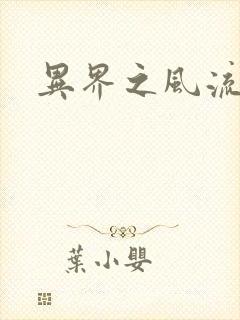 異界之風流
葉小嬰